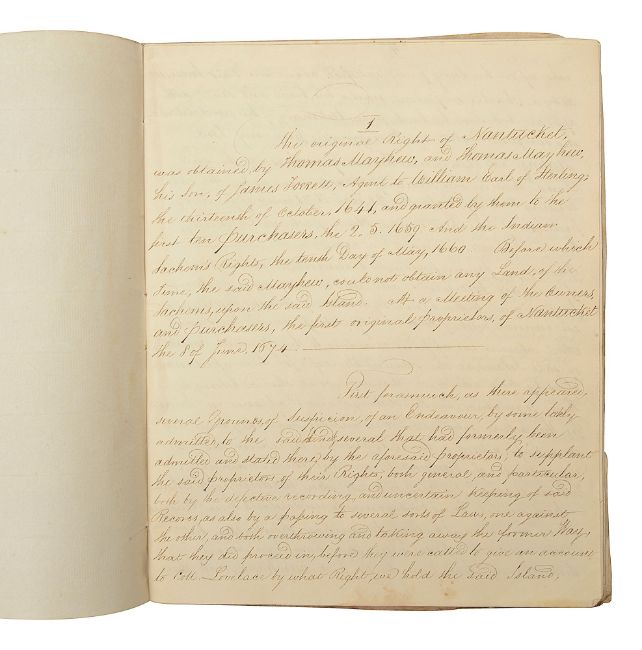 1
The original Right of Nantucket,
was obtained by Thomas Mayhew, and Thomas Mayhew,
his Son, of James Forrett, Agent to William Earl of Sterling,
the thirteenth of October, 1641, and granted by them to the
first ten purchasers, the 2. 5. 1659 And the Indian
Sachem's Rights, the tenth Day of May, 1660 Before which
time, the said Mayhew, could not obtain any Land, of the
Sachems, upon the said Island. At a Meeting of the Owners,
and purchasers, the first original proprietors, of Nantucket
the 8 of June 1674
First forasmuch, as there appeared,
several Grounds, of Suspicion, of an Endeavour, by some lately
admitted, to the said and several that had formerly been
admitted and stated there, by the aforesaid proprietors, to supplant
the said proprietors, of their Rights, both general, and particular,
both by the defective recording, and uncertain keeping of said
Records, as also by a passing to several sorts of Laws, one against
the other, and both overthrowing and taking away the former Way,
that they did proceed in, before they were called to give an account
to Coll. Lovelace by what Right, we hold the said Island,